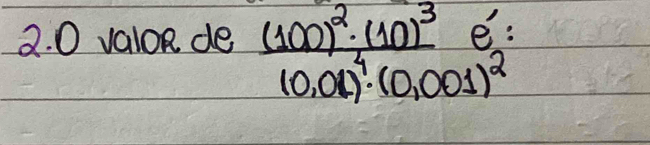 2. O valor de (100)².(10)³ é:
(0,01)⁴.(0,001)²